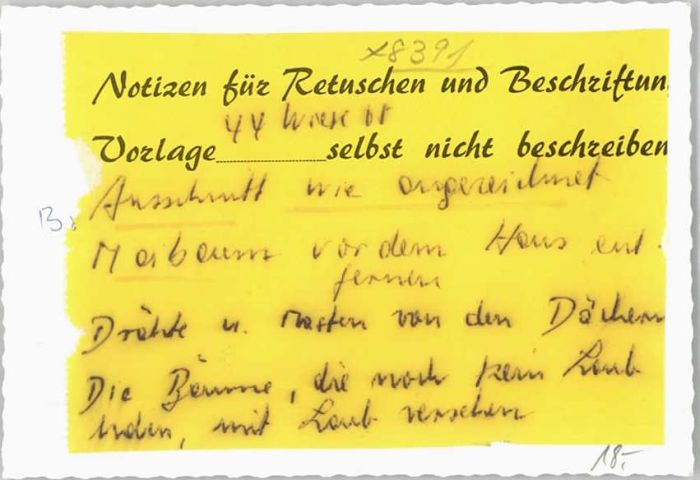 x8391
Notizen für Retuschen und Beschriftun
44 Wiese
Vorlage selbst nicht beschreiben
Ausschnitt wie angezeichnet
B.
Maibaum vor dem Haus ent
fernen
Drähte u. Masten von den Dächern
Die Bäume, die noch kein Laub
haben, mit Laub versehen
18,-